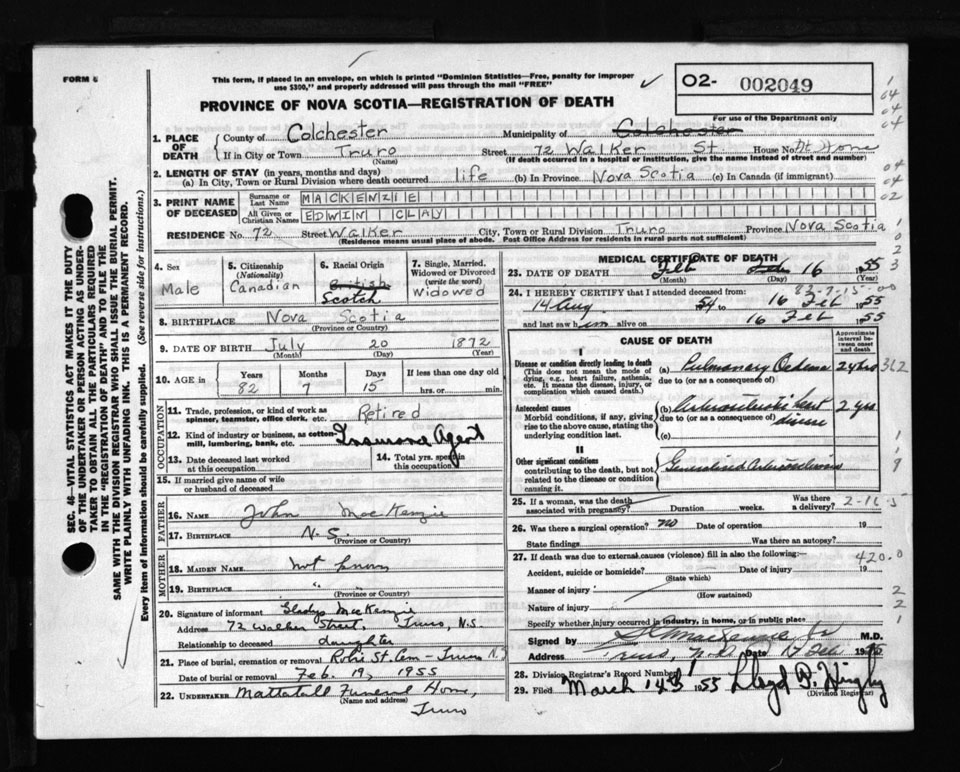 FORM 6
This form, if placed in an envelope, on which is printed "Dominion Statistics—Free, penalty for improper use $300," and properly addressed will pass through the mail "FREE"
O2- 002049
For use of the Department only
PROVINCE OF NOVA SCOTIA—REGISTRATION OF DEATH
SEC. 46—VITAL STATISTICS ACT MAKES IT THE DUTY
OF THE UNDERTAKER OR PERSON ACTING AS UNDERTAKER TO OBTAIN ALL THE PARTICULARS REQUIRED
IN THE "REGISTRATION OF DEATH" AND TO FILE THE
SAME WITH THE DIVISION REGISTRAR WHO SHALL ISSUE THE BURIAL PERMIT.
WRITE PLAINLY WITH UNFADING INK. THIS IS A PERMANENT RECORD.
Every item of information should be carefully supplied. (See reverse side for instructions.)
1. PLACE OF DEATH County of Colchester Municipality of Colchester
If in City or Town Truro (Name) Street 72 Walker St. House No. At Home
(If death occurred in a hospital or institution, give the name instead of street and number)
2. LENGTH OF STAY (in years, months and days)
(a) In City, Town or Rural Division where death occurred life (b) In Province Nova Scotia (c) In Canada (if immigrant)
3. PRINT NAME OF DECEASED Surname or Last Name MACKENZIE
All Given or Christian Names EDWIN CLAY
RESIDENCE No. 72 Street Walker City, Town or Rural Division Truro Province Nova Scotia
(Residence means usual place of abode. Post Office Address for residents in rural parts not sufficient)
4. Sex Male
5. Citizenship (Nationality) Canadian
6. Racial Origin British Scotch
7. Single, Married, Widowed or Divorced (write the word) Widowed
8. BIRTHPLACE Nova Scotia
(Province or Country)
9. DATE OF BIRTH July 20 1872
(Month) (Day) (Year)
10. AGE in Years 82 Months 7 Days 15 If less than one day old hrs. or min.
OCCUPATION
11. Trade, profession, or kind of work as spinner, teamster, office clerk, etc. Retired
12. Kind of industry or business, as cotton-mill, lumbering, bank, etc. Insurance Agent
13. Date deceased last worked at this occupation
14. Total yrs. spent in this occupation
15. If married give name of wife or husband of deceased
FATHER
16. NAME John MacKenzie
17. BIRTHPLACE N.S.
(Province or Country)
MOTHER
18. MAIDEN NAME not known
19. BIRTHPLACE " "
(Province or Country)
20. Signature of informant Gladys MacKenzie
Address 72 Walker Street, Truro, N.S.
Relationship to deceased daughter
21. Place of burial, cremation or removal Robie St. Cem - Truro N.S
Date of burial or removal Feb. 19, 1955
22. UNDERTAKER Mattatall Funeral Home,
(Name and address) Truro
MEDICAL CERTIFICATE OF DEATH
23. DATE OF DEATH Feb 16 1955
(Month) (Day) (Year)
24. I HEREBY CERTIFY that I attended deceased from:
14 Aug 54 to 16 Feb 1955
and last saw him alive on 16 Feb 1955
CAUSE OF DEATH
Approximate interval between onset and death
I
Disease or condition directly leading to death
(This does not mean the mode of dying, e.g., heart failure, asthenia, etc. It means the disease, injury, or complication which caused death.)
(a) Pulmonary Oedema 24 hrs
due to (or as a consequence of)
Antecedent causes
Morbid conditions, if any, giving rise to the above cause, stating the underlying condition last.
(b) Arteriosclerotic heart disease 2 yrs
due to (or as a consequence of)
(c)
II
Other significant conditions
contributing to the death, but not related to the disease or condition causing it.
Generalized Arteriosclerosis
25. If a woman, was the death associated with pregnancy? Duration weeks. Was there a delivery?
26. Was there a surgical operation? no Date of operation 19
State findings Was there an autopsy?
27. If death was due to external causes (violence) fill in also the following: 420.0
Accident, suicide or homicide? Date of injury 19
(State which)
Manner of injury
(How sustained)
Nature of injury
Specify whether injury occurred in industry, in home, or in public place
Signed by M.D.
Address Truro, N.S. Date 17 Feb 1955
28. Division Registrar's Record Number
29. Filed March 14th 1955 Lloyd
(Division Registrar)